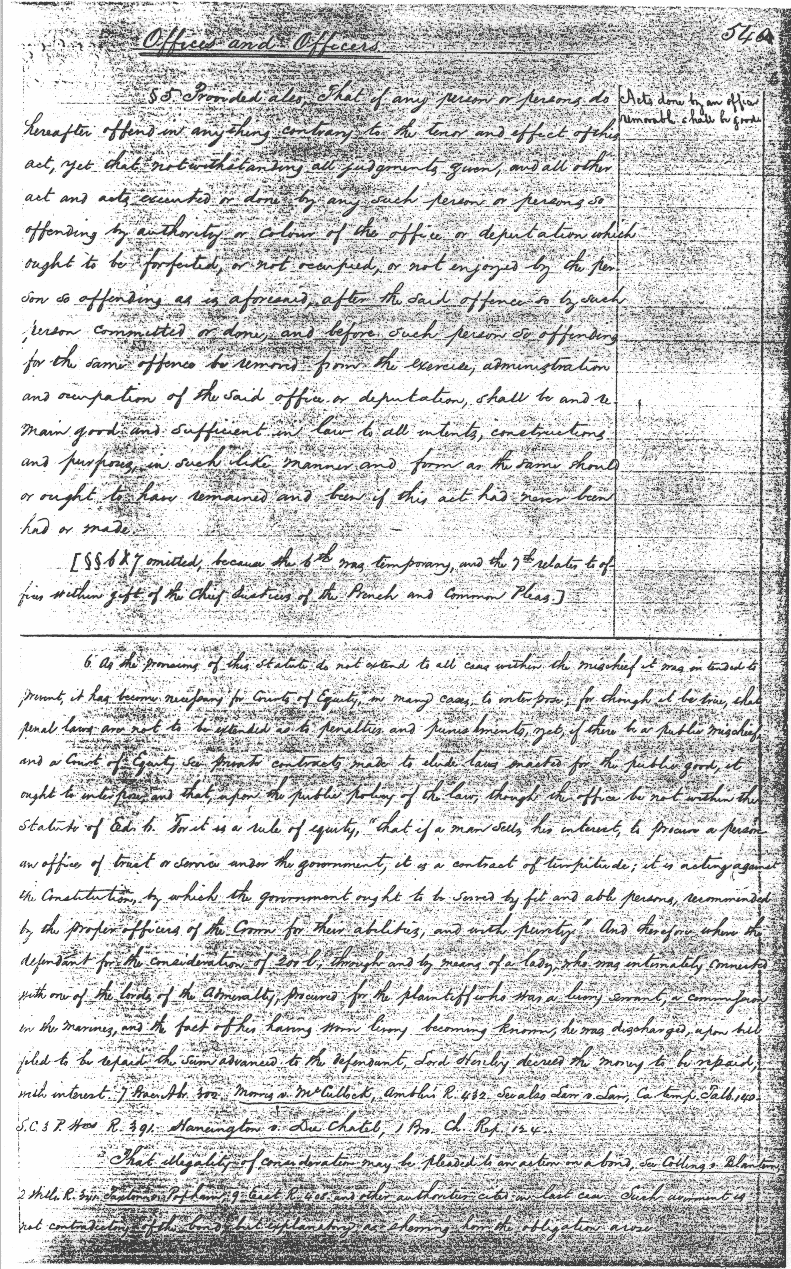 Offices and Officers
54
§5 Provided also, That if any person or persons do
Acts done by an officer
removable shall be good
hereafter offend in anything contrary to the tenor and effect of this
act, yet that notwithstanding all judgments given, and all other
act and acts executed or done by any such person or persons so
offending by authority or colour of the office or deputation which
ought to be forfeited, or not occupied, or not enjoyed by the per-
son so offending as is aforesaid, after the said offence so by such
person committed or done, and before such person so offending
for the same offence be removed from the exercise, administration
and occupation of the said office or deputation, shall be and re-
main good and sufficient in law to all intents, constructions
and purposes, in such like manner and form as the same should
or ought to have remained and been if this act had never been
had or made.
[§§ 6 & 7 omitted, because the 6th was temporary, and the 7th relates to of-
fices within gift of the Chief Justices of the Bench and Common Pleas.]
6 As the provisions of this Statute do not extend to all cases within the mischief it was intended to
prevent, it has become necessary for Courts of Equity, in many cases, to interpose; for though it be true, that
penal laws are not to be extended as to penalties and punishments, yet, if there be a public mischief,
and a Court of Equity see private contracts made to elude laws enacted for the public good, it
ought to interpose, and that, upon the public policy of the law, though the office be not within the
Statute of Ed. 6. For it is a rule of equity, "that if a man sells his interest, to procure a person
an office of trust or service under the government, it is a contract of turpitude; it is acting against
the Constitution, by which the government ought to be served by fit and able persons, recommended
by the proper officers of the Crown for their abilities, and with purity". And therefore where the
defendant for the consideration of 200 l, through and by means of a lady, who was intimately connected
with one of the lords of the Admiralty, procured for the plaintiff who was a livery servant, a commission
in the marines, and the fact of his having worn livery becoming known, he was discharged, upon bill
filed to be repaid the sum advanced to the defendant, Lord Henley decreed the money to be repaid,
with interest. 7 Bac. Ab. 300. Morris v. McCullock, Ambler's R. 432. See also Law v. Law, Ca. temp. Talb. 140.
S.C. 3 P. Wms R. 391. Hanington v. Du Chatel, 1 Bro. Ch. Rep. 124.
That illegality of consideration may be pleaded to an action on a bond, see Collins v. Blantern,
2 Wils. R. Paxton v. Popham, 9 East R. 408. and other authorities cited in last case. Such averment is
not contradictory of the bond, but explanatory, as shewing how the obligation arose